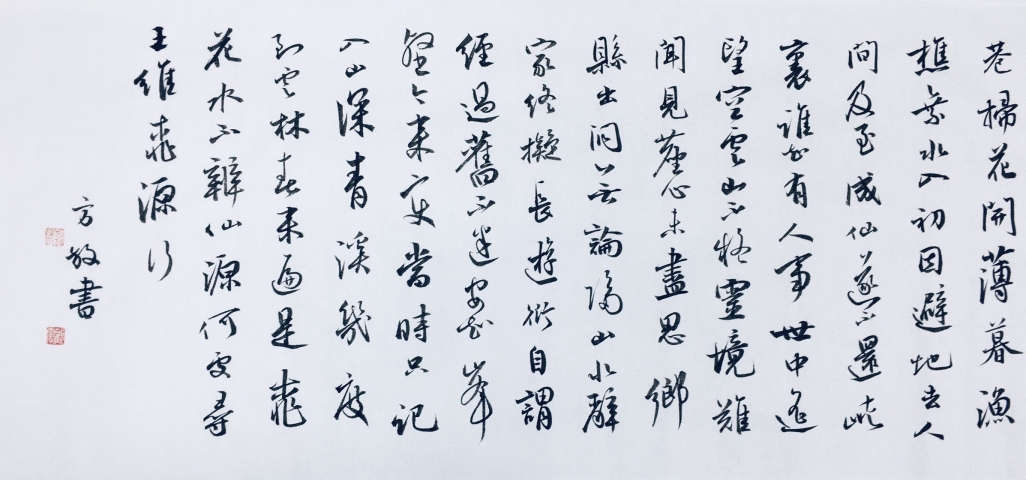 巷掃花開薄暮漁
樵乘水入初因避地去人
間及至成仙遂不還峽
裏誰知有人事世中遙
望空雲山不疑靈境難
聞見塵心未盡思鄉
縣出洞無論隔山水辭
家終擬長遊衍自謂
經過舊不迷安知峯
壑今來變當時只記
入山深青溪幾度
到雲林春來遍是桃
花水不辨仙源何處尋
王維桃源行
方敏書